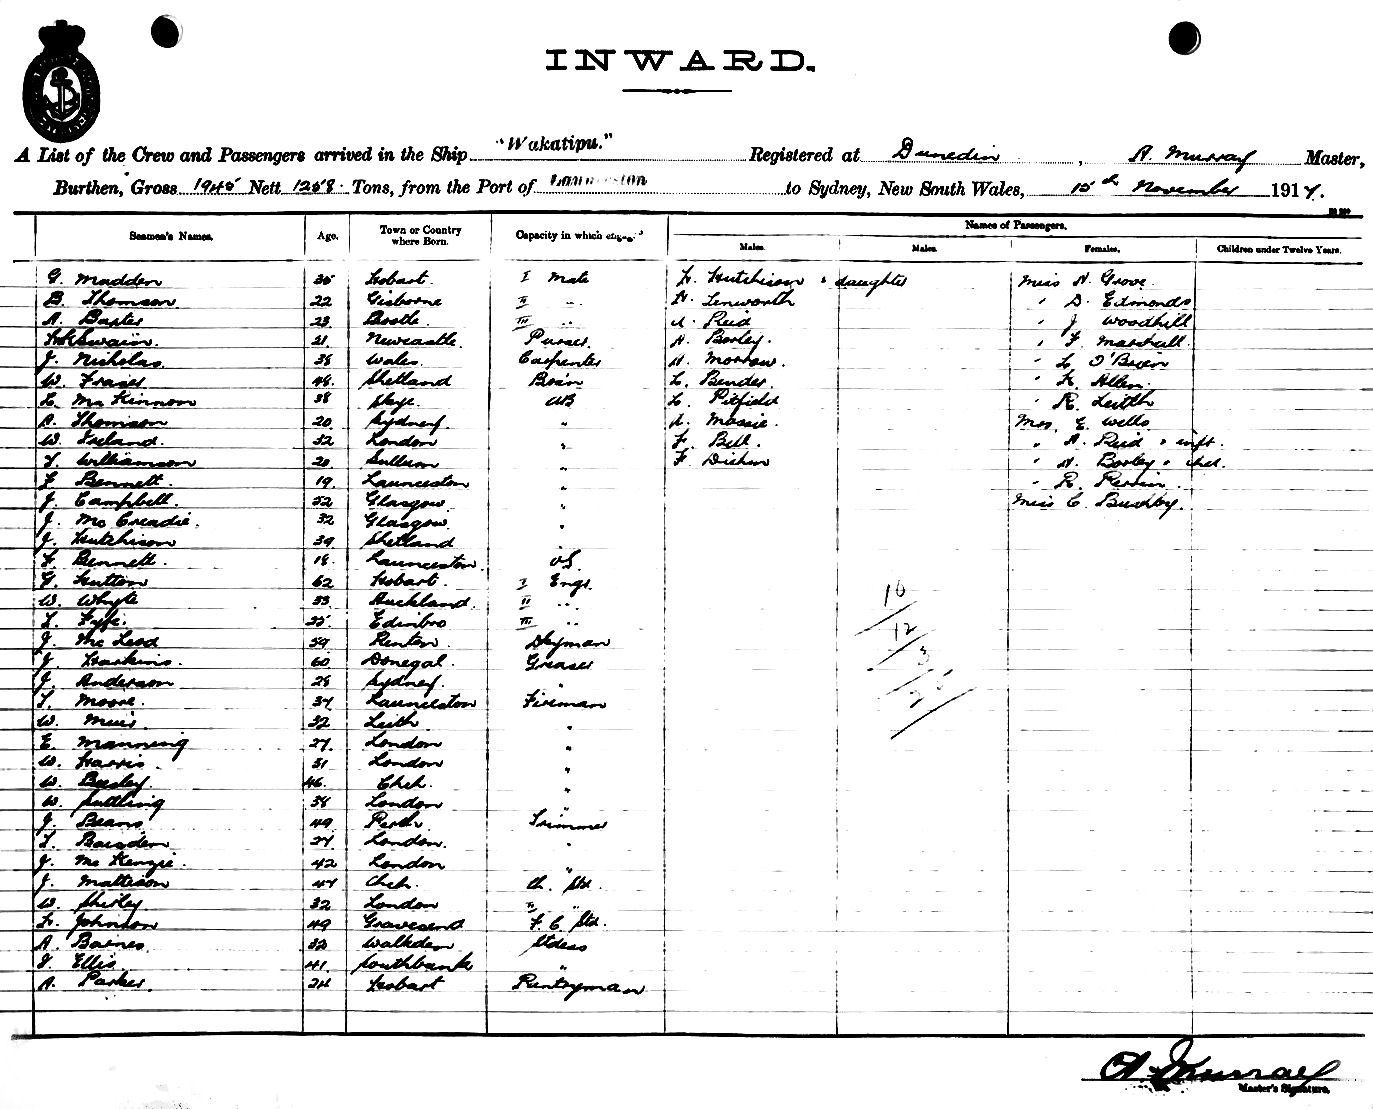 INWARD.
A List of the Crew and Passengers arrived in the Ship "Wakatipu." Registered at Dunedin, A. Murray Master,
Burthen, Gross 1945 Nett 1258 Tons, from the Port of Launceston to Sydney, New South Wales, 15th November 1917.
Seamen's Names. Age. Town or Country where Born. Capacity in which Names of Passengers.
Males. Males. Females. Children under Twelve Years.
G. Madden Hobart I Mate H. Hutchison & daughter Miss H. Grove
B. Thomson 22 Gisborne II " A. Lenworth " D. Edmonds
A. Baxter 23 Bootle III " A. Reid " J. Woodhill
Swain 21 Newcastle Purser A. Boxley " F. Marshall
J. Nicholas 38 Wales Carpenter A. Morrow " L. O'Brien
W. Fraser 48 Shetland Bos'n L. Bender " K. Allen
L. McKinnon 38 Skye AB L. Pitfield " R. Leith
A. Thomson 20 Sydney " A. Massie Mrs E. Wells
W. Ireland 32 London " F. Bell " A. Reid & inft.
Williamson 20 " F. " A. Boxley &
F. Bennett 19 Launceston " " R. Perrin
J. Campbell 52 Glasgow " Miss C.
J. McCreadie 32 Glasgow "
J. Hutchison 39 Shetland "
F. Bennett 18 Launceston OS
G. Hutton 62 Hobart I Engr.
W. Whyte 33 Auckland II "
Fyfe Edinbro III "
J. McLeod 59 Renton Dkyman
J. Harkins 60 Donegal Greaser
J. Anderson 28 Sydney "
T. Moore 37 Launceston Fireman
W. Muir 32 Leith "
E. Manning 27 London "
W. Harris 31 London "
W. 46 "
W. Suttling 38 London "
J. Beans 49 Perth Trimmer
27 London "
J. McKenzie 42 London "
J. Mattison 47 Ch. Std.
W. Shirley 32 London II "
L. Johnson 49 Gravesend F. C. Std.
A. Barnes 32 Walkden Stdess
Ellis 41 Southbank "
A. Parker 24 Hobart Pantryman
10
12
A. Murray
Master's Signature.